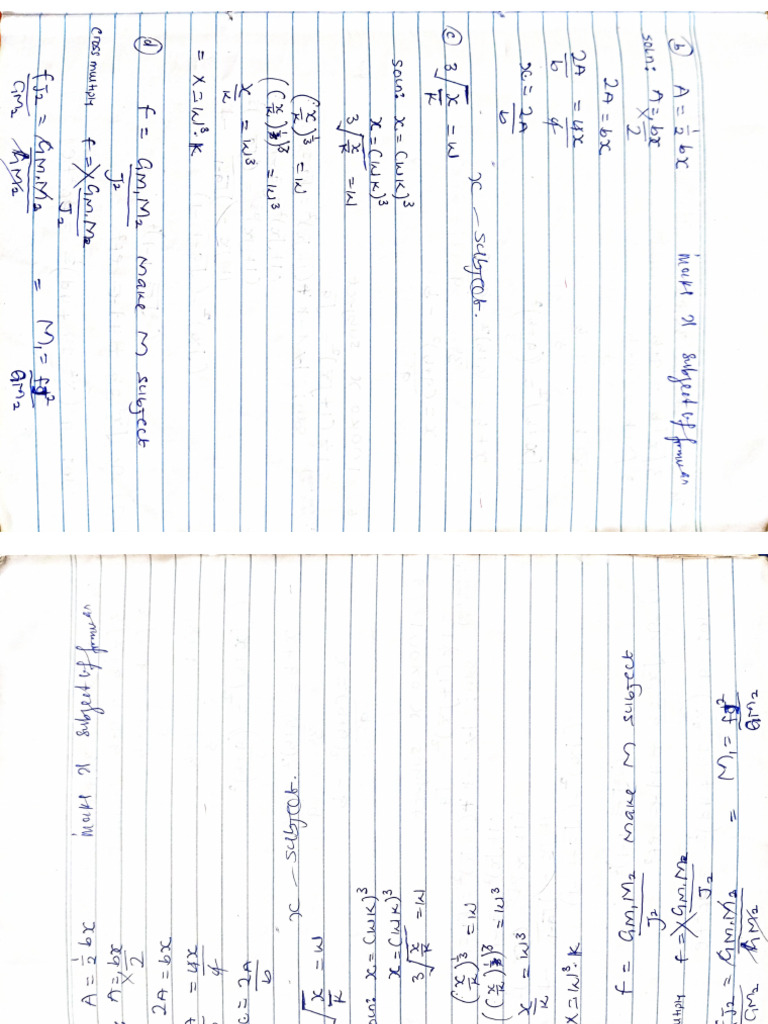 (b) A = 1/2 bx make x subject of
soln: A = bx/2
2A = bx
2A/b = 4x/4
x = 2A/b
(c) ³√x/k = w x — subject.
soln: x = (wk)³
x = (wk)³
³√x/k = w
(x/k)^1/3 = w
((x/k)^1/3)³ = w³
x/k = w³
= x = w³·k
(d) f = GM₁M₂/J₂ make M subject
Cross multiply f = GM₁M₂/J₂
fJ₂/GM₂ = GM₁M₂/GM₂ = M₁ = fJ²/GM₂
A = 1/2 bx make x subject of
: A = bx/2
2A = bx
= 4x/4
= 2A/b
√x/k = w x — subject.
x = (wk)³
x = (wk)³
³√x/k = w
(x/k)^1/3 = w
((x/k)^1/3)³ = w³
x/k = w³
x = w³·k
f = GM₁M₂/J₂ make M subject
multiply f = GM₁M₂/J₂
J₂/GM₂ = GM₁M₂/GM₂ = M₁ = fJ²/GM₂